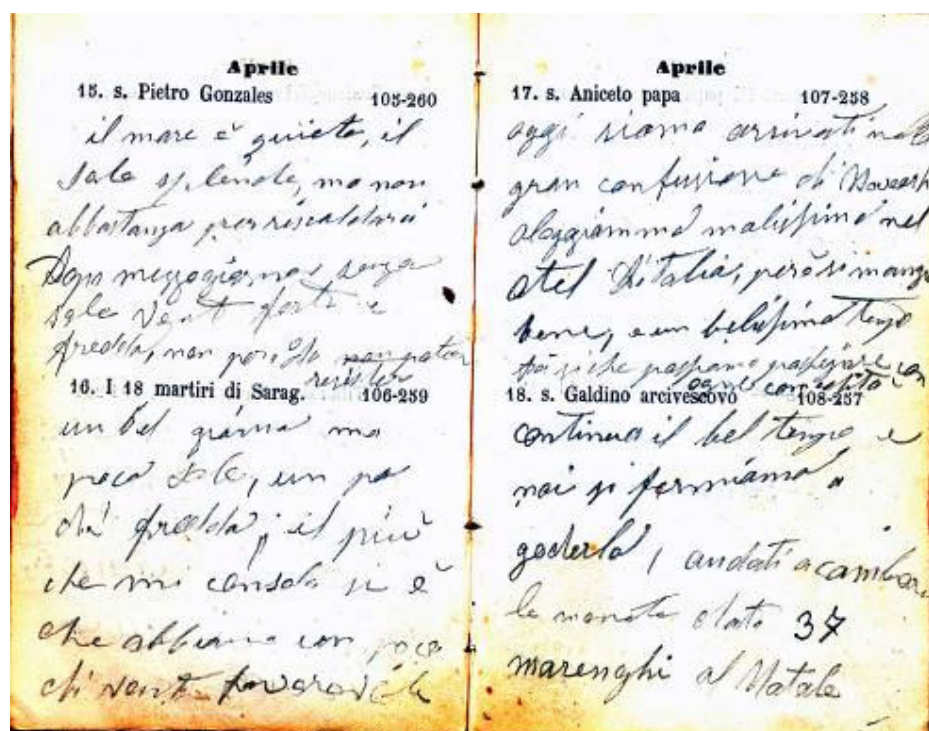 Aprile
15. s. Pietro Gonzales 105-260
il mare è quieto, il
sole splende, ma non
abbastanza per riscaldarci
Dopo mezzogiorno senza
sole vent forte e
fredda, non posso non poter
resister
16. I 18 martiri di Sarag. 106-259
un bel giorno ma
poco sole, un po
di fredda; il più
che mi consola si è
che abbiamo un poco
di vent favorevole
Aprile
17. s. Aniceto papa 107-258
oggi siamo arrivati nella
gran confusione di
aloggiammo malissimo nel
otel d'italia, però si mangia
bene, e un belissimo tempo
si che possiamo passegiare con
ogni comodità
18. s. Galdino arcivescovo 108-257
continua il bel tempo e
noi si fermiamo a
goderlo, andati a cambiare
le monete dato 37
marenghi al Natale